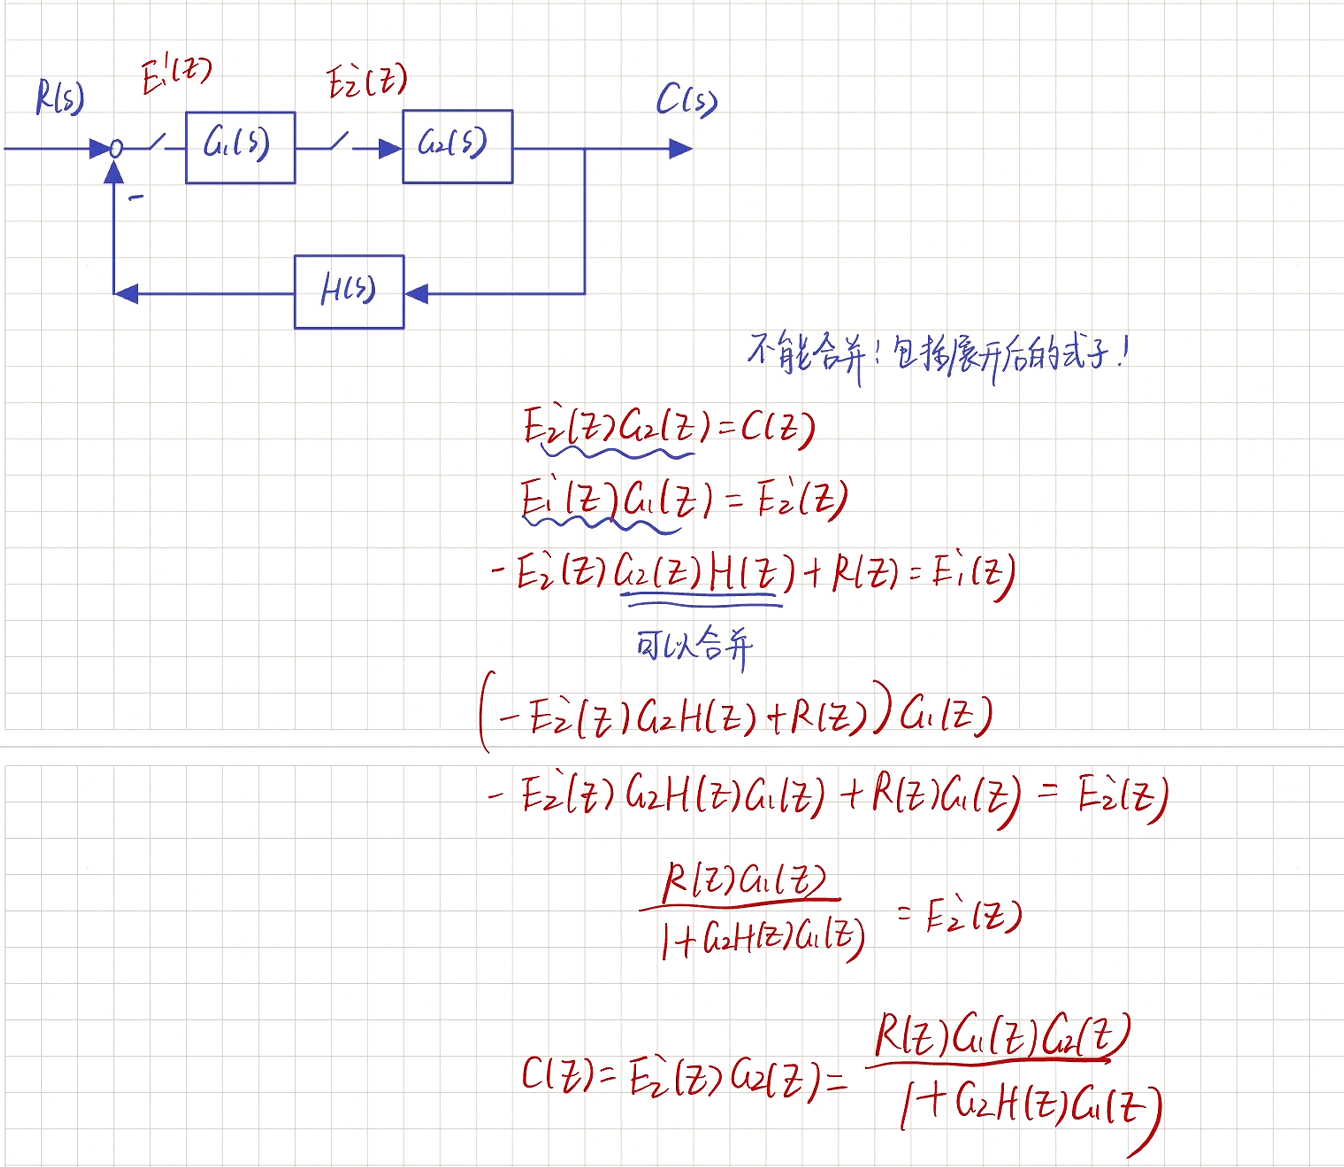 R(s) E₁'(z) E₂'(z) C(s)
G₁(s) G₂(s)
-
H(s)
不能合并!包括展开后的式子!
E₂'(z)G₂(z)=C(z)
E₁'(z)G₁(z)=E₂'(z)
-E₂'(z)G₂(z)H(z)+R(z)=E₁'(z)
可以合并
(-E₂'(z)G₂H(z)+R(z))G₁(z)
-E₂'(z)G₂H(z)G₁(z)+R(z)G₁(z)=E₂'(z)
R(z)G₁(z)/1+G₂H(z)G₁(z) =E₂'(z)
C(z)=E₂'(z)G₂(z)=R(z)G₁(z)G₂(z)/1+G₂H(z)G₁(z)